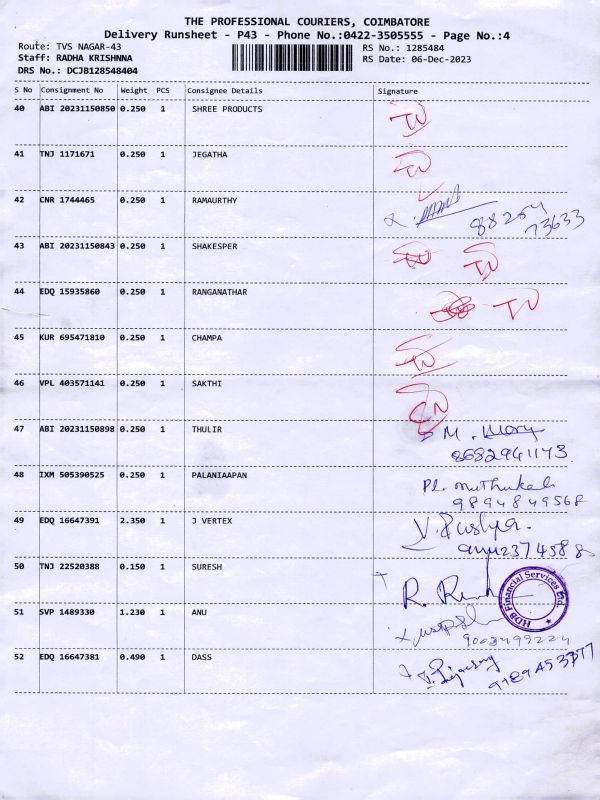 THE PROFESSIONAL COURIERS, COIMBATORE
Delivery Runsheet - P43 - Phone No.:0422-3505555 - Page No.:4
Route: TVS NAGAR-43
RS No.: 1285484
Staff: RADHA KRISHNNA
RS Date: 06-Dec-2023
DRS No.: DCJB128548404
S No Consignment No Weight PCS Consignee Details Signature
40 ABI 20231150850 0.250 1 SHREE PRODUCTS
41 TNJ 1171671 0.250 1 JEGATHA
42 CNR 1744465 0.250 1 RAMAURTHY
88254
73633
43 ABI 20231150843 0.250 1 SHAKESPER
44 EDQ 15935860 0.250 1 RANGANATHAR
45 KUR 695471810 0.250 1 CHAMPA
46 VPL 403571141 0.250 1 SAKTHI
47 ABI 20231150898 0.250 1 THULIR
8682941173
48 IXM 505390525 0.250 1 PALANIAAPAN
9894849568
49 EDQ 16647391 2.350 1 J VERTEX
50 TNJ 22520388 0.150 1 SURESH
HDB Financial Services Ltd.
51 SVP 1489330 1.230 1 ANU
52 EDQ 16647381 0.490 1 DASS